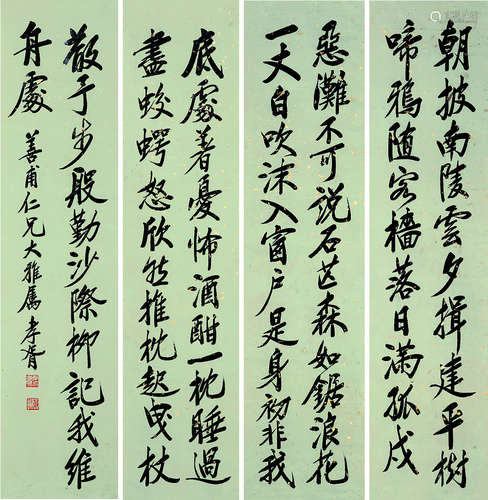 朝披南陵雲夕揖建平樹
啼鴉随客檣落日滿孤戍
惡灘不可說石芒森如鋸浪花
一丈白吹沫入窗戶是身初非我
底處著憂怖酒酣一枕睡過
盡蛟蜃怒欣然推枕起曳杖
散予步殷勤沙際柳記我維
舟處
善甫仁兄大雅属 孝胥